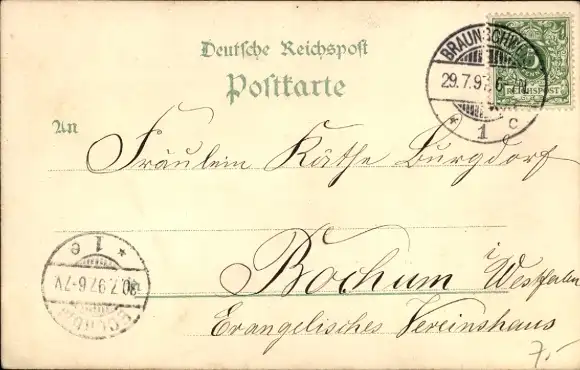 Deutsche Reichspost
Postkarte
BRAUNSCHW
29.7.97. 6-
* 1 c
REICHSPOST
An
Fräulein Käthe Burgdorf
Bochum i Westfalen
Evangelisches Vereinshaus
* 1 e
30.7.97. 6-7V.
BOCHUM
7.-